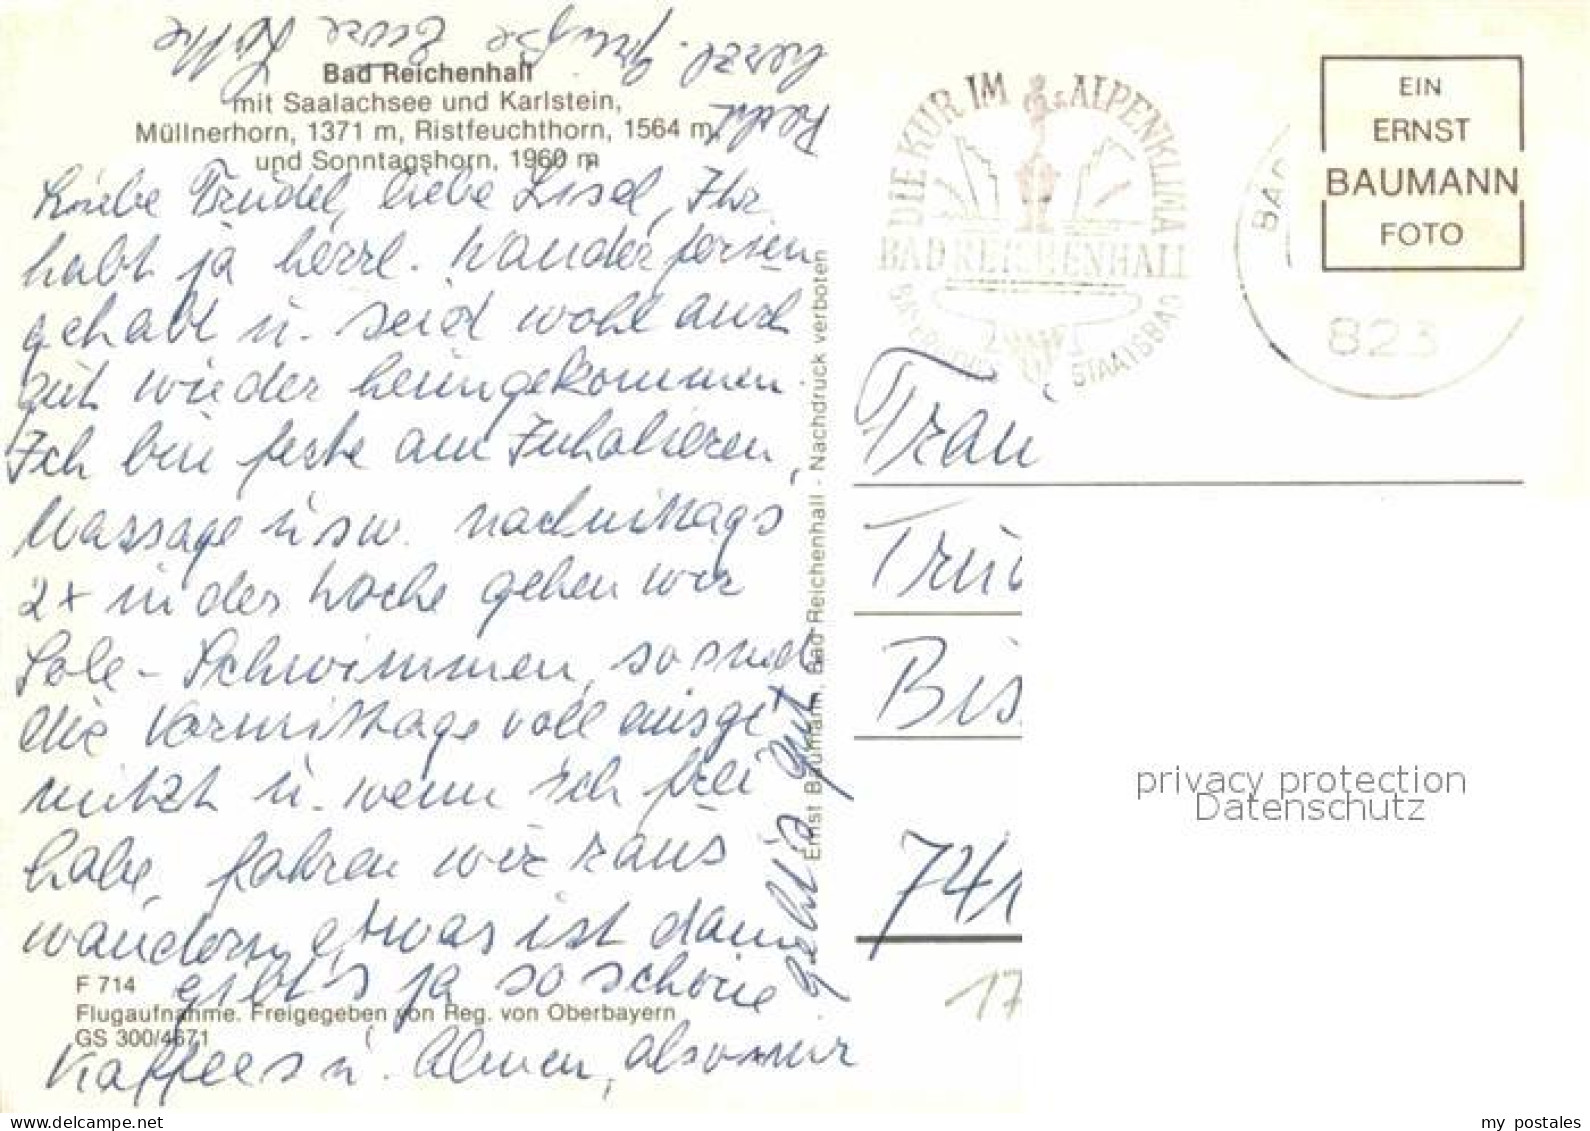 Bad Reichenhall
mit Saalachsee und Karlstein,
Müllnerhorn, 1371 m, Ristfeuchthorn, 1564 m,
und Sonntagshorn, 1960 m
Liebe Trudel, liebe Lisel, Ihr
habt ja herrl. Wanderferien
gehabt u. seid wohl auch
gut wieder heimgekommen.
Ich bin feste am Inhalieren,
Massage usw. nachmittags
2x in der Woche gehen wir
Sole-Schwimmen, so sind
die Vormittage voll ausge
nützt u. wenn ich frei
habe, fahren wir raus
wandern, etwas ist dann
gibt's ja so schöne
Kaffees u. Almen, also mir
geht's gut
Recht
herzl. Grüße Eure Lotte
F 714
Flugaufnahme. Freigegeben von Reg. von Oberbayern
GS 300/4671
Ernst Baumann, Bad Reichenhall - Nachdruck verboten
DIE KUR IM ALPENKLIMA
BAD REICHENHALL
STAATSBAD
BAD
823
EIN
ERNST
BAUMANN
FOTO
Frau
Tru
Bis
741
17
privacy protection
Datenschutz
my postales